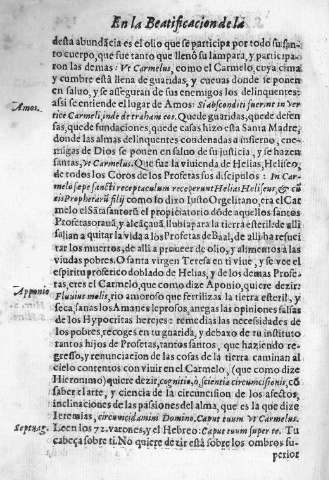 En la Beatificacion de la
desta abundãcia es el olio que se participa por todo su san-
to cuerpo, que fue tanto que llenô su lampara, y participa-
ron las demas: Vt Carmelus, como el Carmelo, cuya cima
y cumbre està llena de guaridas, y cueuas donde se ponen
en saluo, y se asseguran de sus enemigos los delinquentes:
Amos.
assi se entiende el lugar de Amos: Si absconditi fuerint in ver
tice Carmeli, inde de traham eos. Que de guaridas, que de defen
sas, que de fundaciones, que de casas hizo esta Santa Madre,
donde las almas delinquentes condenadas a infierno, ene-
migas de Dios se ponen en saluo de su justicia, y se hazen
santas, Vt Carmelus. Que fue la viuienda de Helias, Heliseo,
de todos los Coros de los Profetas sus discipulos: In Car-
melo sæpe sancti receptaculum receperunt Helias Heliseus, & cũ
eis Prophetarũ filij como lo dixo Iusto Orgelitano, era el Car
melo el Sãcta sanctorũ el propiciatorio dõde aquellos santos
Profetas orauã, y alcãçauã lluuia para la tierra esteril: de alli
salian a quitar la vida a los Profetas de Baal, de alli a resuci
tar los muertos, de alli a proueer de olio, y alimentos a las
viudas pobres. O santa virgen Teresa en ti viue, y se vee el
espiritu profetico doblado de Helias, y de los demas Profe-
Apponio
tas, eres el Carmelo, que como dize Aponio, quiere dezir
Fluuius molis, rio amoroso que fertilizas la tierra esteril, y
seca, sanas los Amanes leprosos, anegas las opiniones falsas
de los Hypocritas herejes: remedias las necesidades de
los pobres, recoges en tu guarida, y debaxo de tu instituto
tantos hijos de Profetas, tantos santos, que haziendo re-
gresso, y renunciacion de las cosas de la tierra caminan al
cielo contentos con viuir en el Carmelo, (que como dize
Hieronimo) quiere dezir, cognitio, & scientia circuncisionis, cõ
saber el arte, y ciencia de la circuncision de los afectos,
inclinaciones de las passiones del alma, que es la que dize
Ieremias, circuncidamini Domino. Caput tuum vt Carmelus.
Septuag.
Leen los 72. varones, y el Hebreo: Caput tuum super te. Tu
cabeça sobre ti. No quiere dezir està sobre los ombros su-
perior